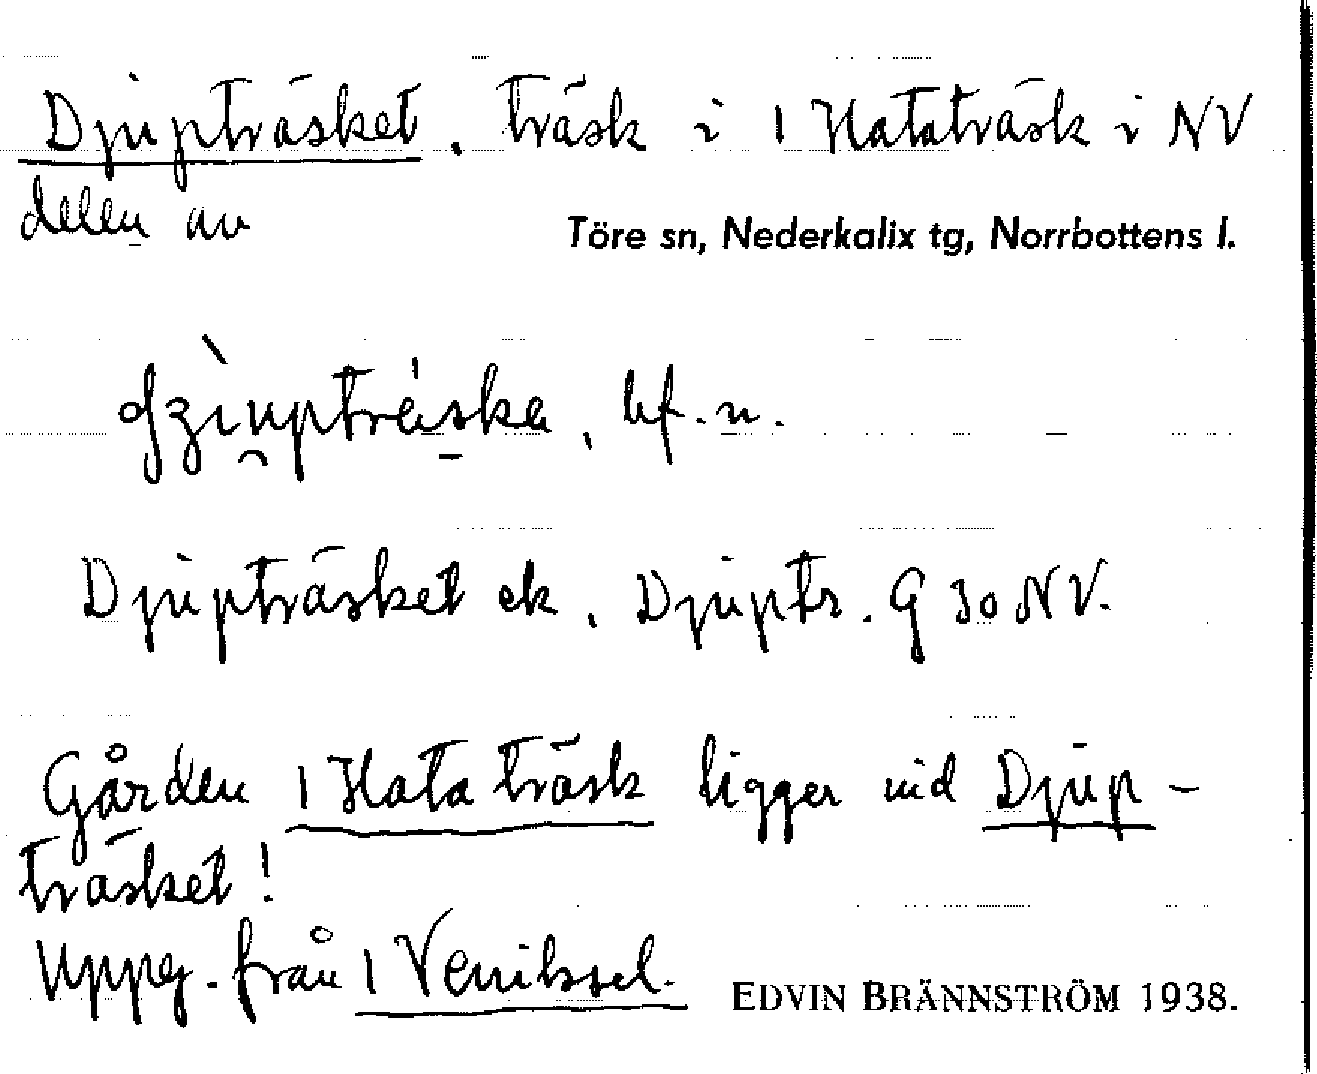 Djupträsket, träsk i 1 Hataträsk i NV
delen av
Töre sn, Nederkalix tg, Norrbottens l.
bf. n.
Djupträsket ek, Djuptr. G 30 NV.
Gården 1 Hataträsk ligger vid Djup-
träsket!
Uppg. från 1 Veniksel.
EDVIN BRÄNNSTRÖM 1938.